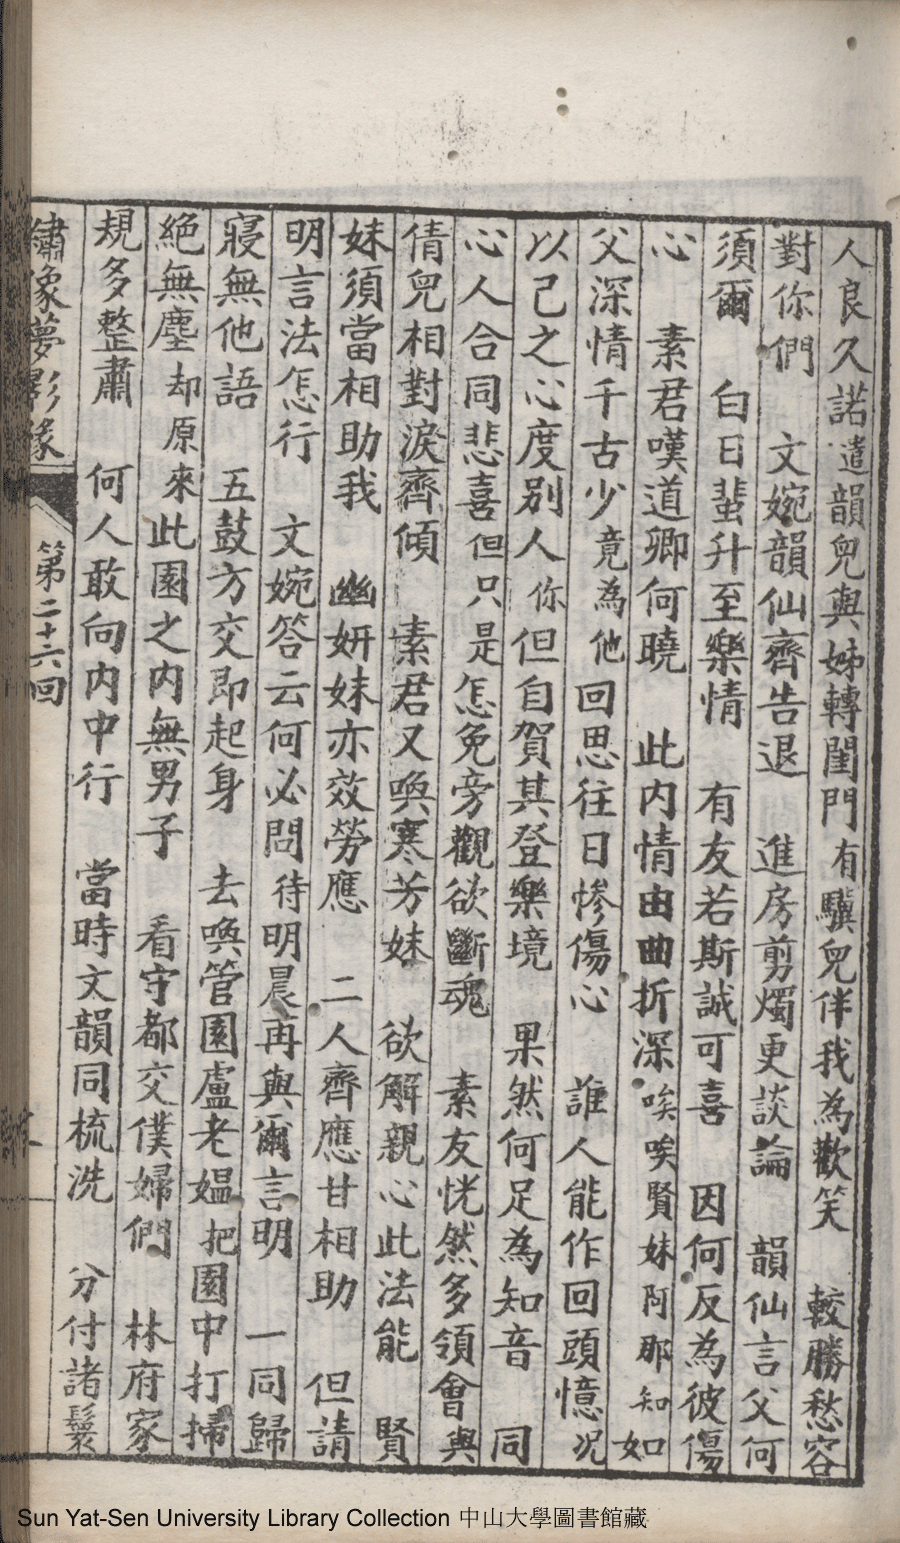 人良久諾遣韻兒與姊轉閨門有驥兒伴我為歡笑　較勝愁容
對你們　文婉韻仙齊告退　進房剪燭更談論　韻仙言父何
須爾　白日蜚升至樂情　有友若斯誠可喜　因何反為彼傷
心　素君嘆道卿何曉　此內情由曲折深唉唉賢妹阿那知如
父深情千古少竟為他回思往日慘傷心　誰人能作回頭憶况
以己之心度別人你但自賀其登樂境　果然何足為知音　同
心人合同悲喜但只是怎免旁觀欲斷魂　素友恍然多領會與
倩兒相對淚齊傾　素君又喚寒芳妹　欲解親心此法能　賢
妹須當相助我　幽妍妹亦效勞應　二人齊應甘相助　但請
明言法怎行　文婉答云何必問待明晨再與爾言明　一同歸
寢無他語　五鼓方交即起身　去喚管園盧老媪把園中打掃
絕無塵却原來此園之內無男子　看守都交僕婦們　林府家
規多整肅　何人敢向內中行　當時文韻同梳洗　分付諸鬟
繡像夢影緣　第二十六回
Sun Yat-Sen University Library Collection 中山大學圖書館藏